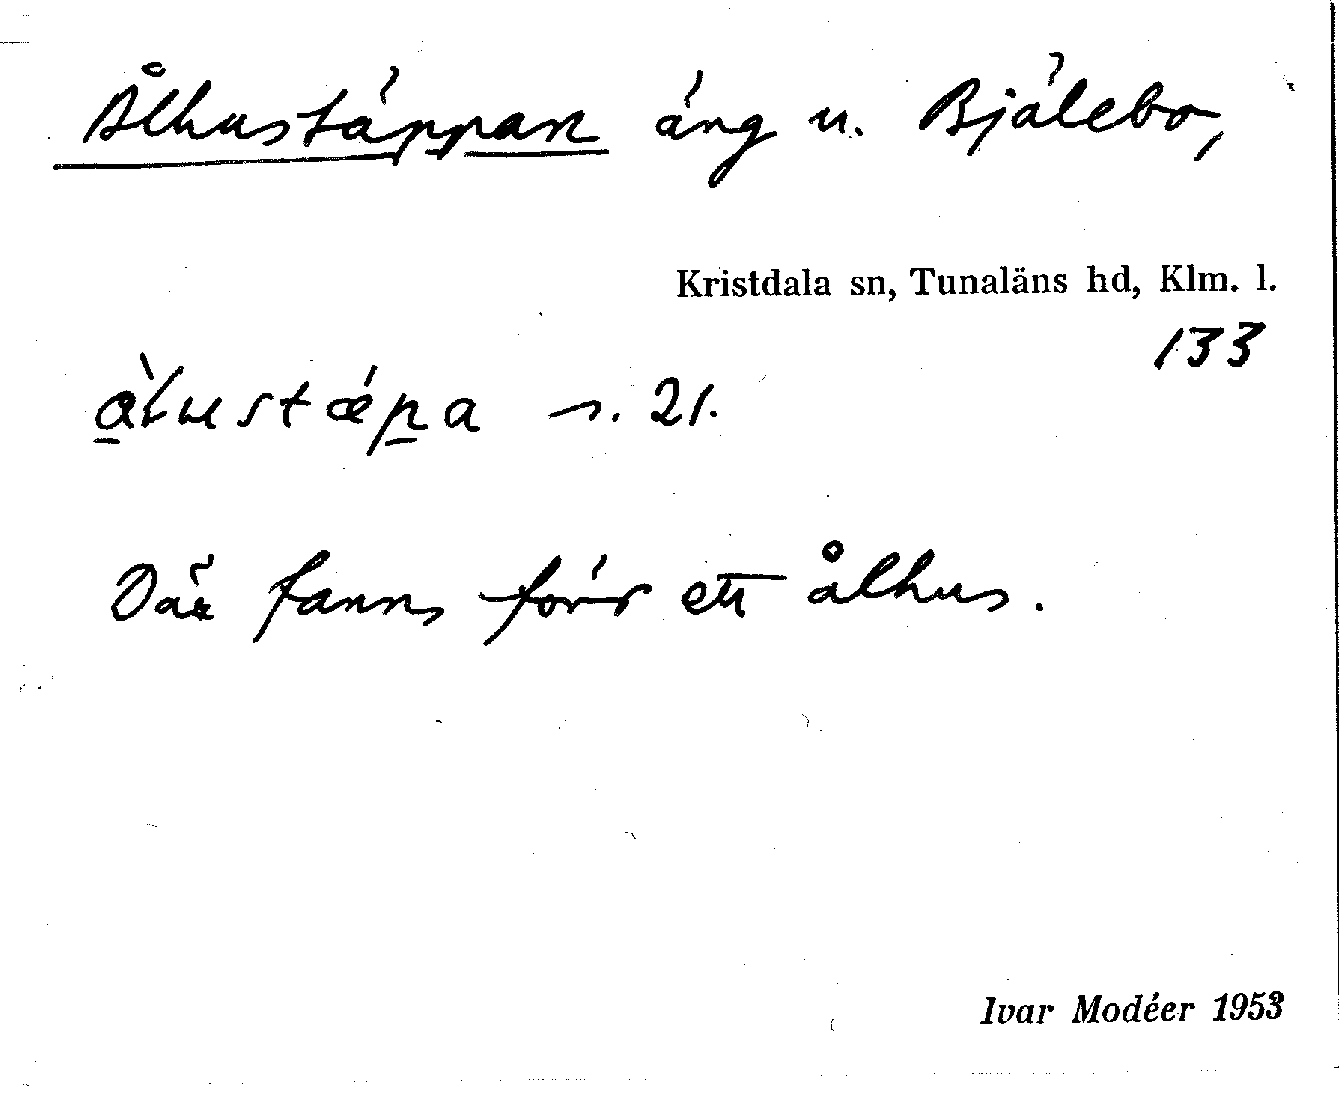 Ålhustäppan äng u. Bjälebo,
Kristdala sn, Tunaläns hd, Klm. l.
133
à̠lustǽp̠a s. 21.
Där fanns förr ett ålhus.
Ivar Modéer 1953